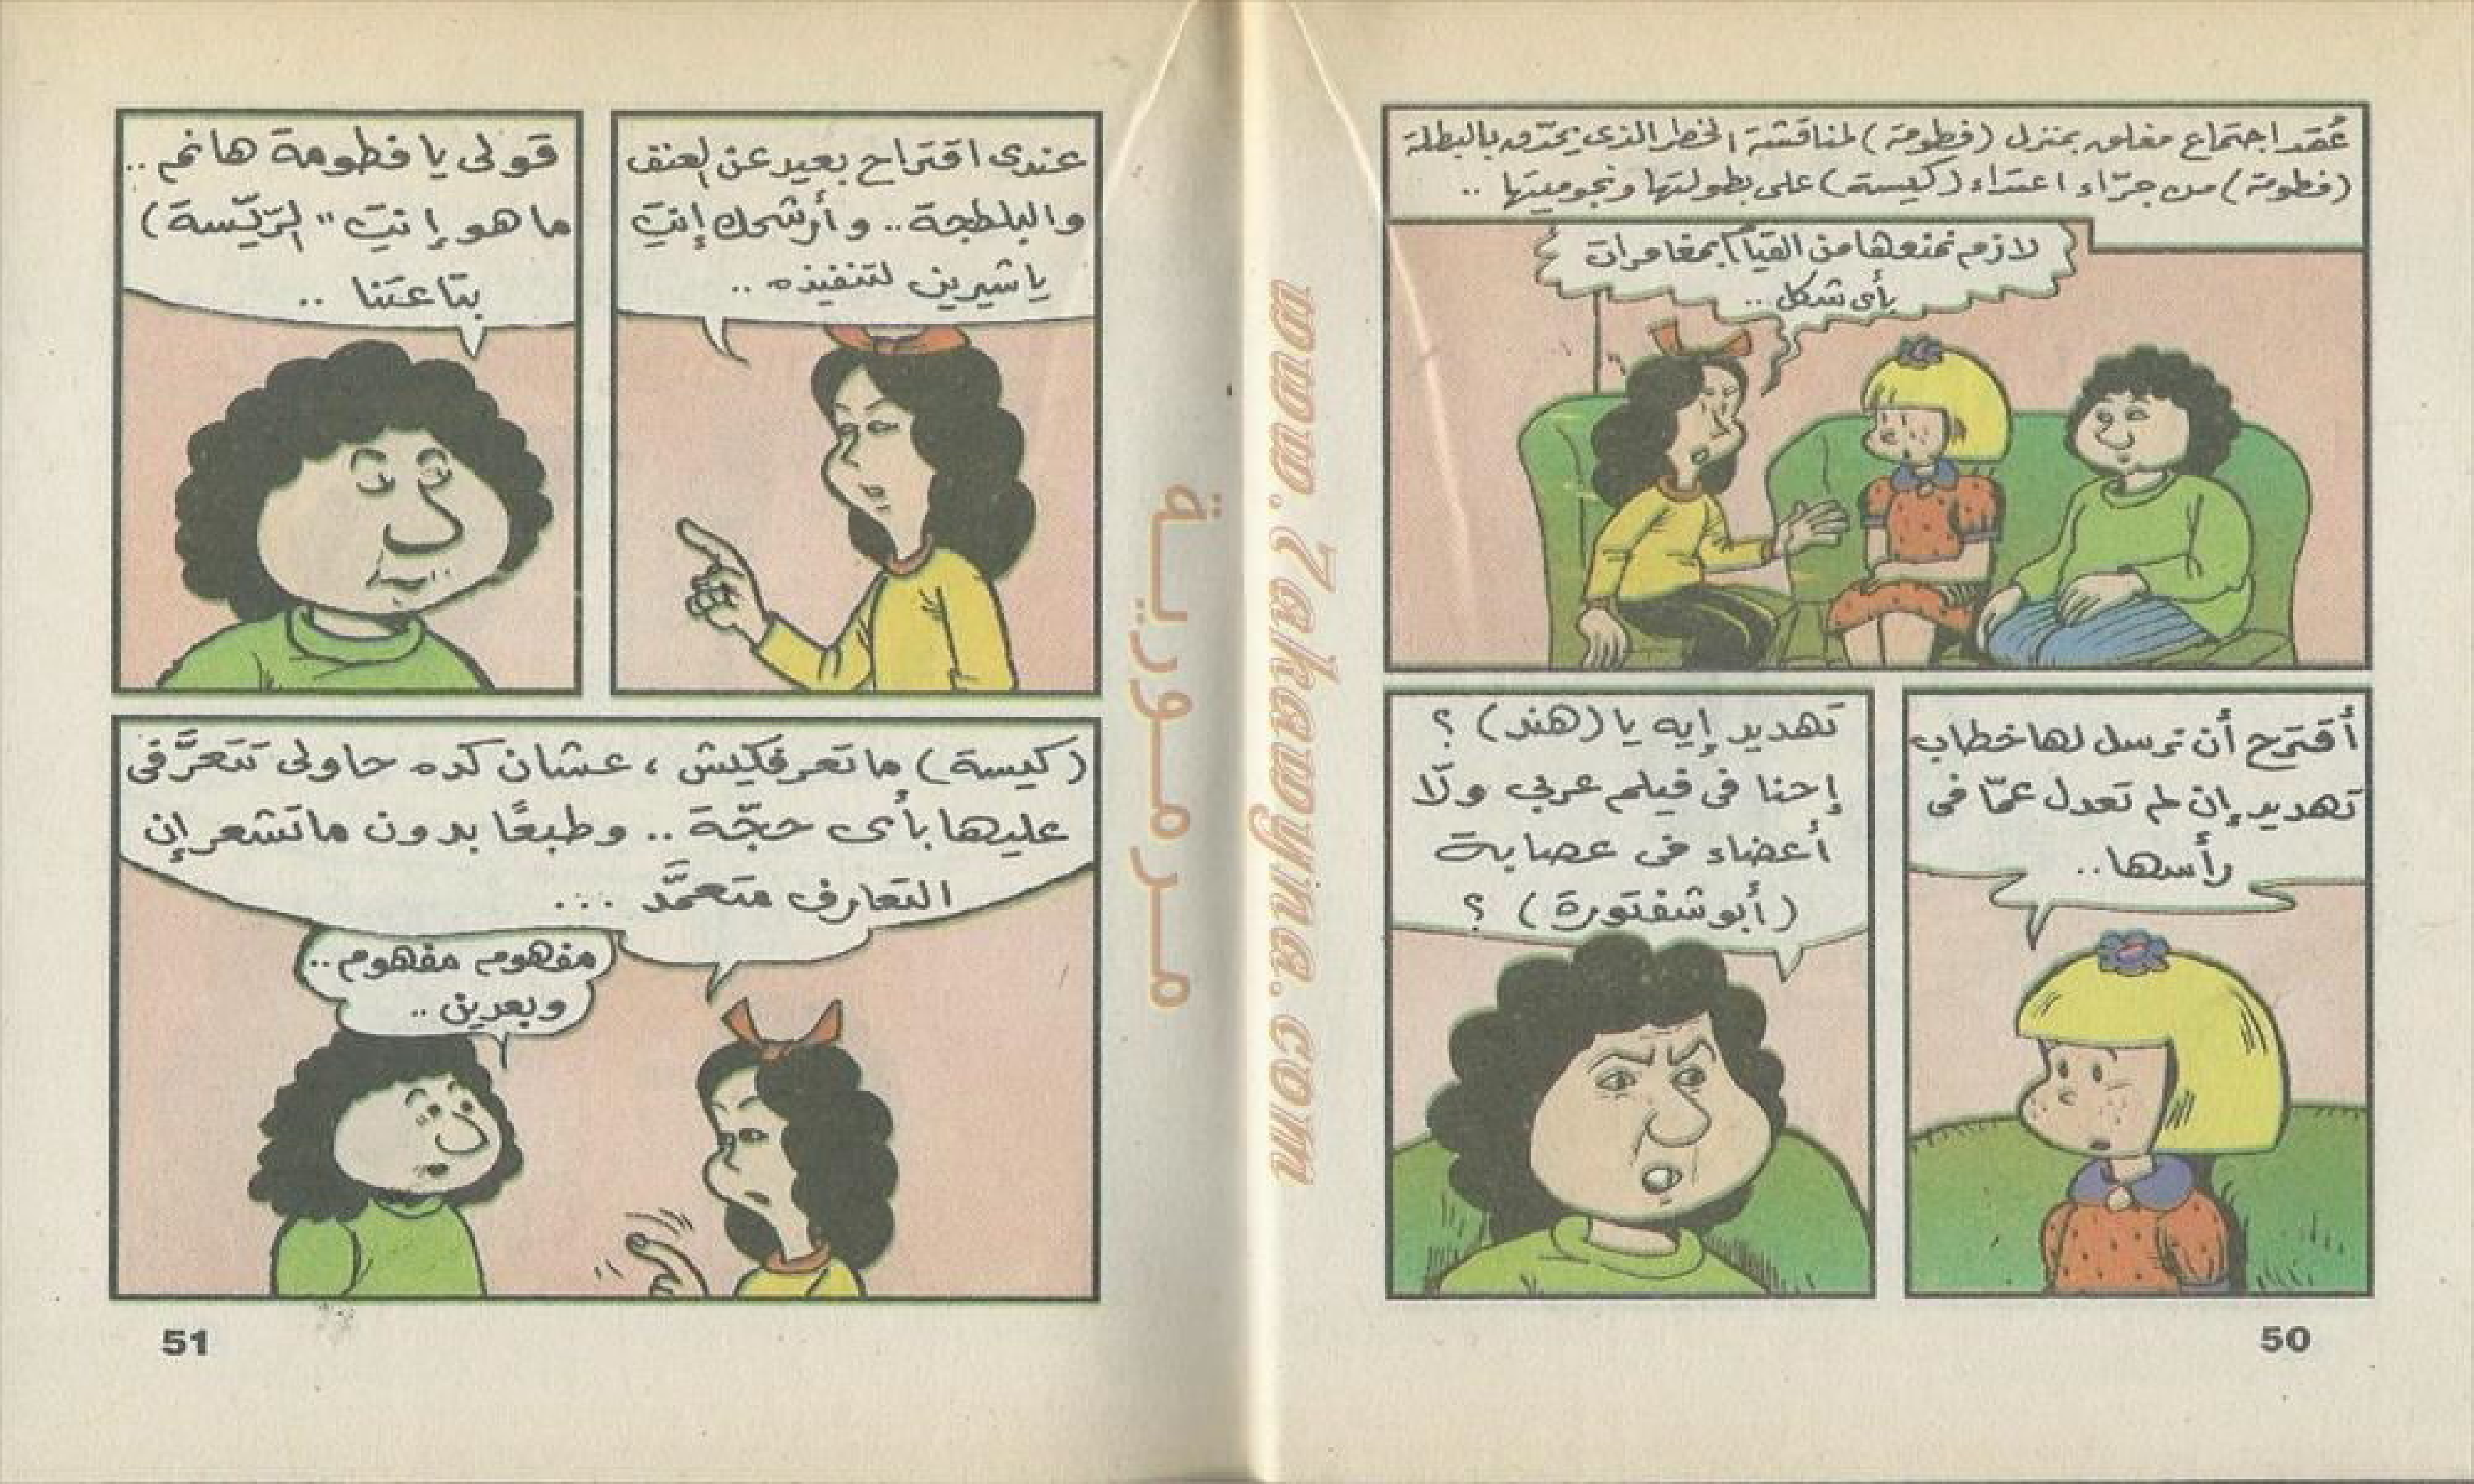 عُقد اجتماع مغلق بمنزل (فطومة) لمناقشة الخطر الذى يحدّق بالبطلة
(فطومة) من جرّاء اعتداء (كيسة) على بطولتها ونجوميتها ..
لازم نمنعها من القيام بمغامرات
بأى شكل ..
أقترح أن نرسل لها خطاب
تهديد إن لم تعدل عمّا فى
رأسها ..
تهديد إيه يا (هند) ؟
إحنا فى فيلم عربى ولّا
أعضاء فى عصابة
(أبو شفتورة) ؟
50
عندى اقتراح بعيد عن العنف
والبلطجة .. وأرشحك إنتِ
يا شيرين لتنفيذه ..
قولى يا فطومة هانم ..
ما هو إنتِ "الريّسة)
بتاعتنا ..
(كيسة) ما تعرفكيش ، عشان كده حاولى تتعرَّفى
عليها بأى حجّة .. وطبعًا بدون ما تشعر إن
التعارف متعمَّد ...
مفهوم مفهوم ..
وبعدين ..
51
مرمورية
www.7akawyna.com